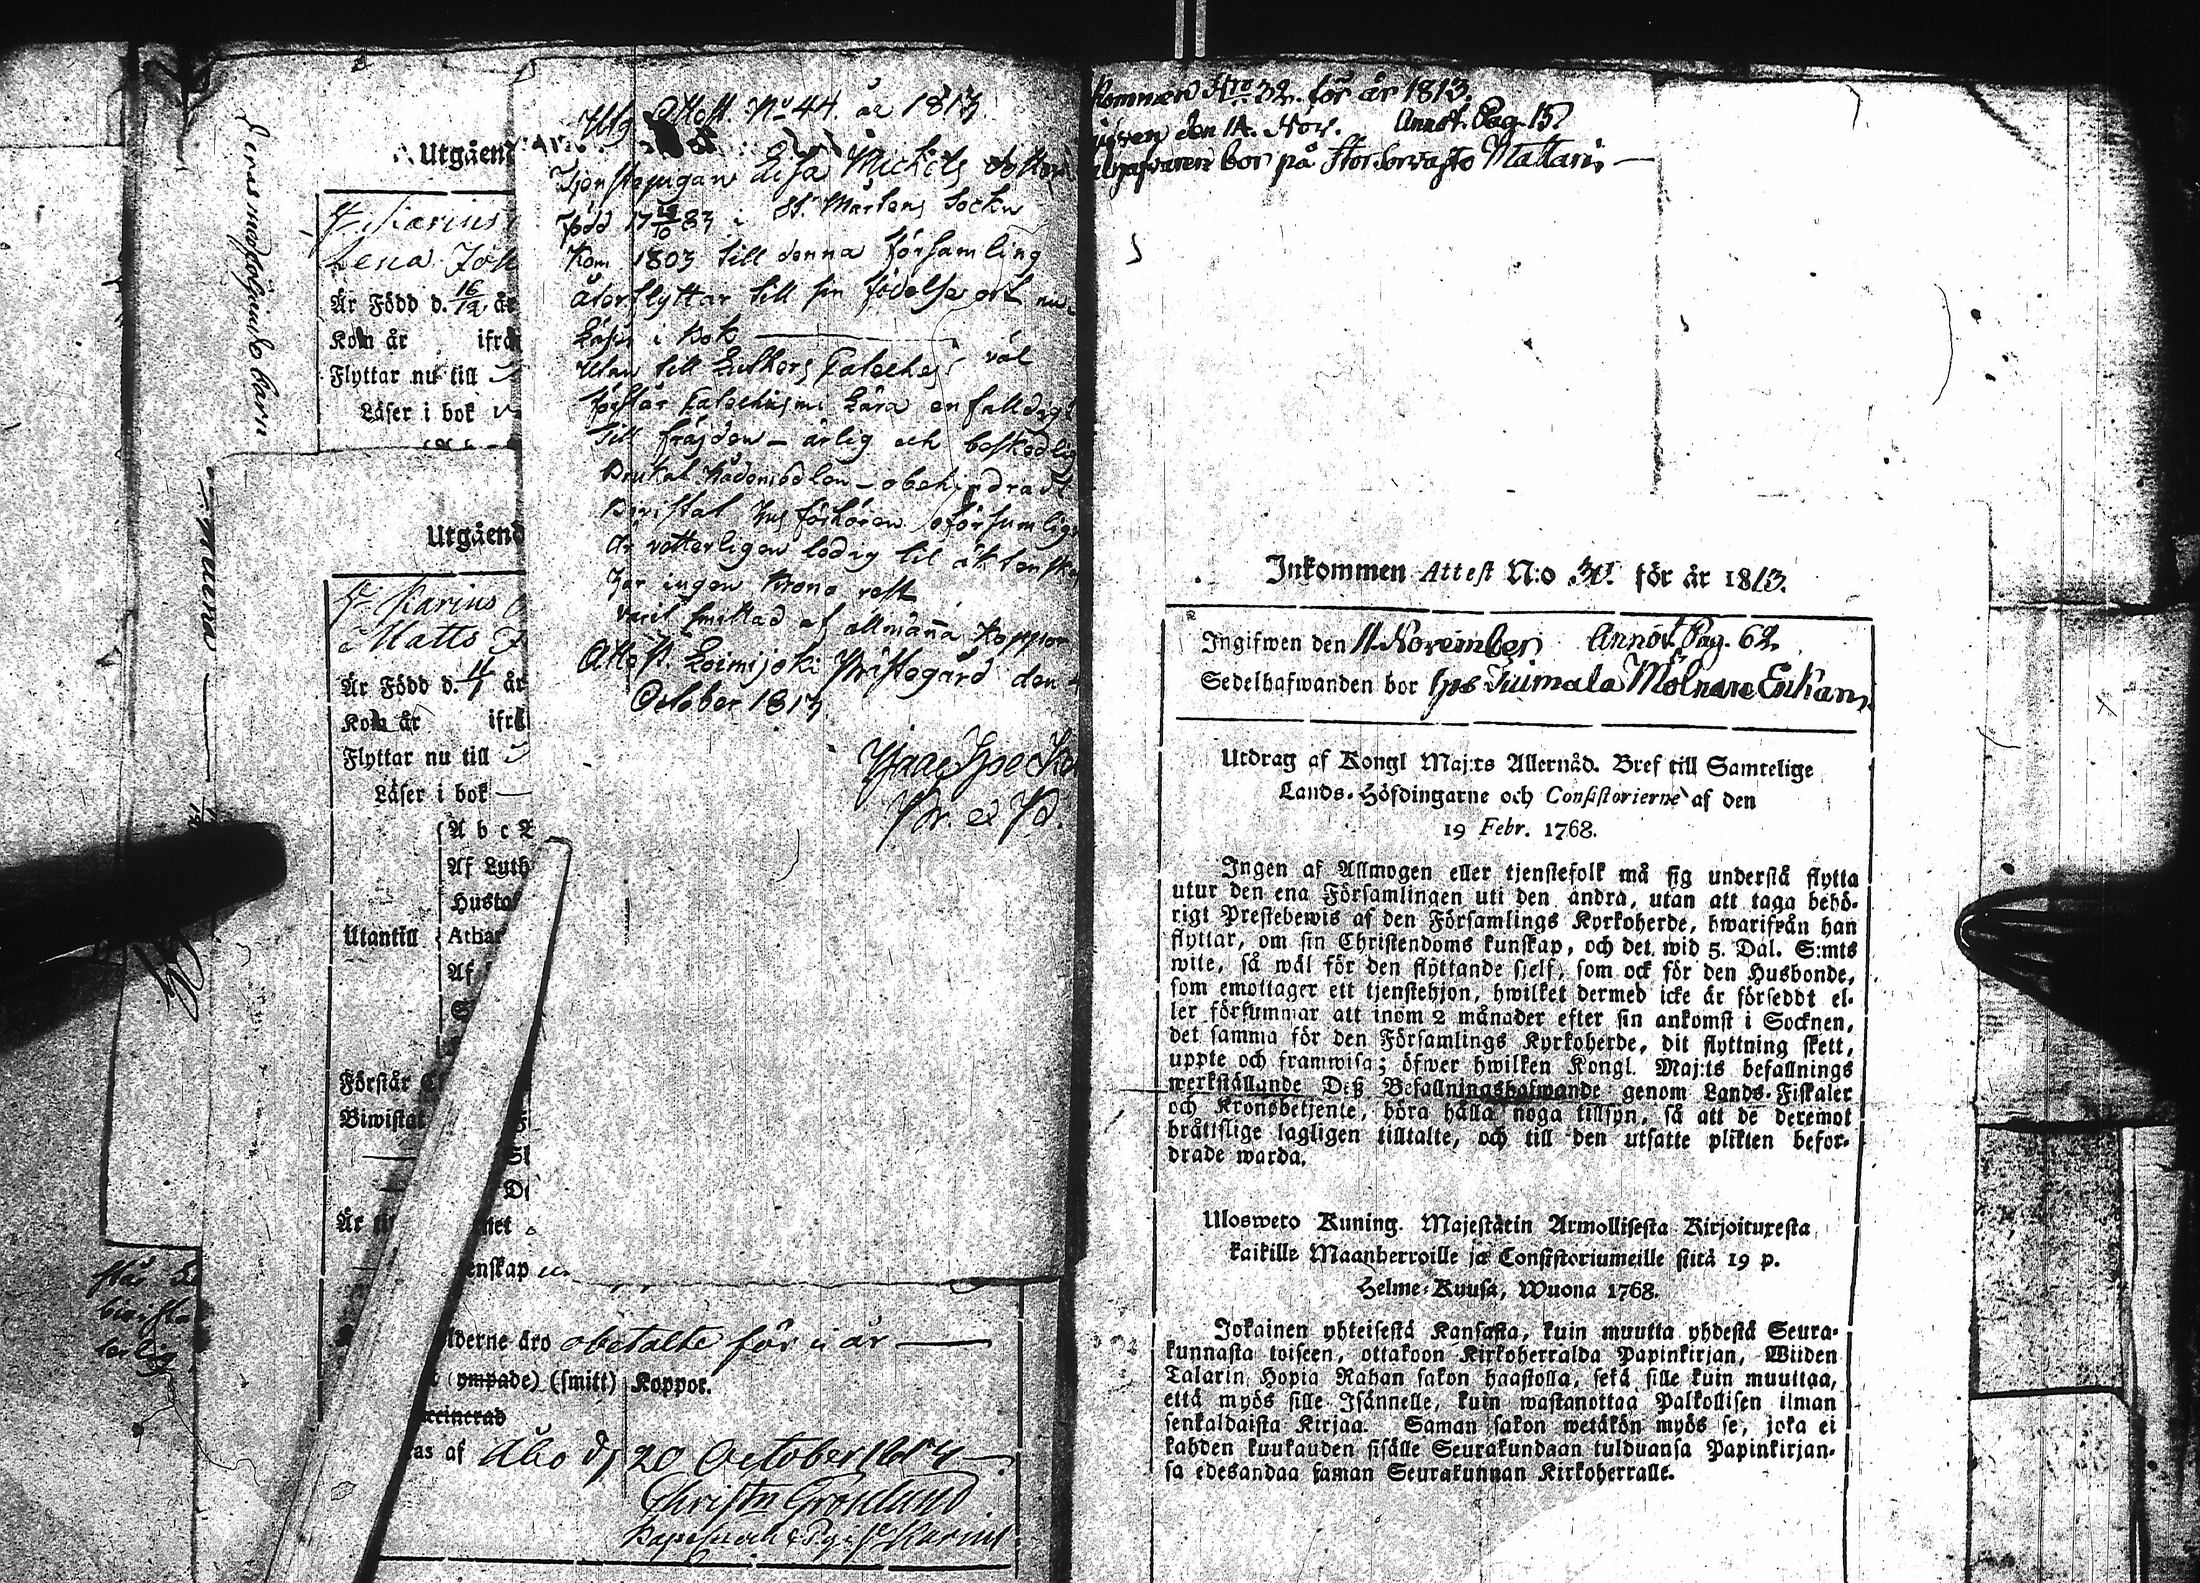 Deras medföljande barn
Utgåend
St. Karins
Lena Joh
Är Född d. 16/12 år
Kom år ifrå
Flyttar nu till
Läser i bok
Utgåend
St. Karins
Matts
Är Född d. 4/1 år
Kom år ifrå
Flyttar nu till
Läser i bok
A b c
Af Luth
Husta
Utantill Athan
Af
Förstår
Biwistat
Är
enskap
lderne äro obetalte för i år
(ympade) (smitt) Koppor.
accinerad
as af Åbo d 20 October 1813
Christn Grönlund
St Karins
Utg Attest. No 44. år 1813
Tjenstepigan Lisa Michels dotter
född 17 19/10 83 i St. Mårtens Sockn
Kom 1803 till denna församling
återflyttar till sin födelse ort nu
Läser i Bok
Utan till Luthers Cateches väl
förstår Catechismi Lära enfalldigt
Till frägden - ärlig och beskedlig
Brukat Nådemedlen - obehindradt
Bivistat husförhören oförsumlig
Är vetterligen ledig til äktenska
har ingen Krono rest
varit smittad af allmänna koppor
Attest. Loimijoki Prästegård den
October 1813
kommen Nro 32. för år 1813.
gifven den 14. Nov. Annot. Pag. 15
bor på Mattari
Inkommen Attest N:o 31. för år 1813.
Ingifwen den 11. November Annot. Pag. 62.
Sedelhafwanden bor hos Juimala Mölnare Enkan
Utdrag af Kongl Maj:ts Allernåd. Bref till Samtelige
Lands-Höfdingarne och Consistorierne af den
19 Febr. 1768.
Ingen af Allmogen eller tjenstefolk må sig understå flytta
utur den ena Församlingen uti den andra, utan att taga behö-
rigt Prestebewis af den Församlings Kyrkoherde, hwarifrån han
flyttar, om sin Christendoms kunskap, och det wid 5. Dal. S:mts
wite, så wäl för den flyttande sjelf, som ock för den Husbonde,
som emottager ett tjenstehjon, hwilket dermed icke är försedt el-
ler försummar att inom 2 månader efter sin ankomst i Socknen,
det samma för den Församlings Kyrkoherde, dit flyttning skett,
uppte och framwisa; öfwer hwilken Kongl. Maj:ts befallnings
werkställande Deß Befallningshafwande genom Lands-Fiskaler
och Kronobetjente, böra hålla noga tillsyn, så att de deremot
bråtislige lagligen tilltalte, och till den utsatte plikten befor-
drade warda.
Ulosweto Kuning. Majestätin Armollisesta Kirjoituxesta
kaikille Maanherroille ja Consistoriumeille siitä 19 p.
Helme-Kuusa, Wuona 1768.
Jokainen yhteisestä Kansasta, kuin muutta yhdestä Seura-
kunnasta toiseen, ottakoon Kirkoherralda Papinkirjan, Wiiden
Talarin Hopia Rahan sakon haastolla, sekä sille kuin muuttaa,
että myös sille Isännelle, kuin wastanottaa Palkollisen ilman
senkaldaista Kirjaa. Saman sakon wetäkön myös se, joka ei
kahden kuukauden sisälle Seurakundaan tulduansa Papinkirjan-
sa edesandaa saman Seurakunnan Kirkoherralle.